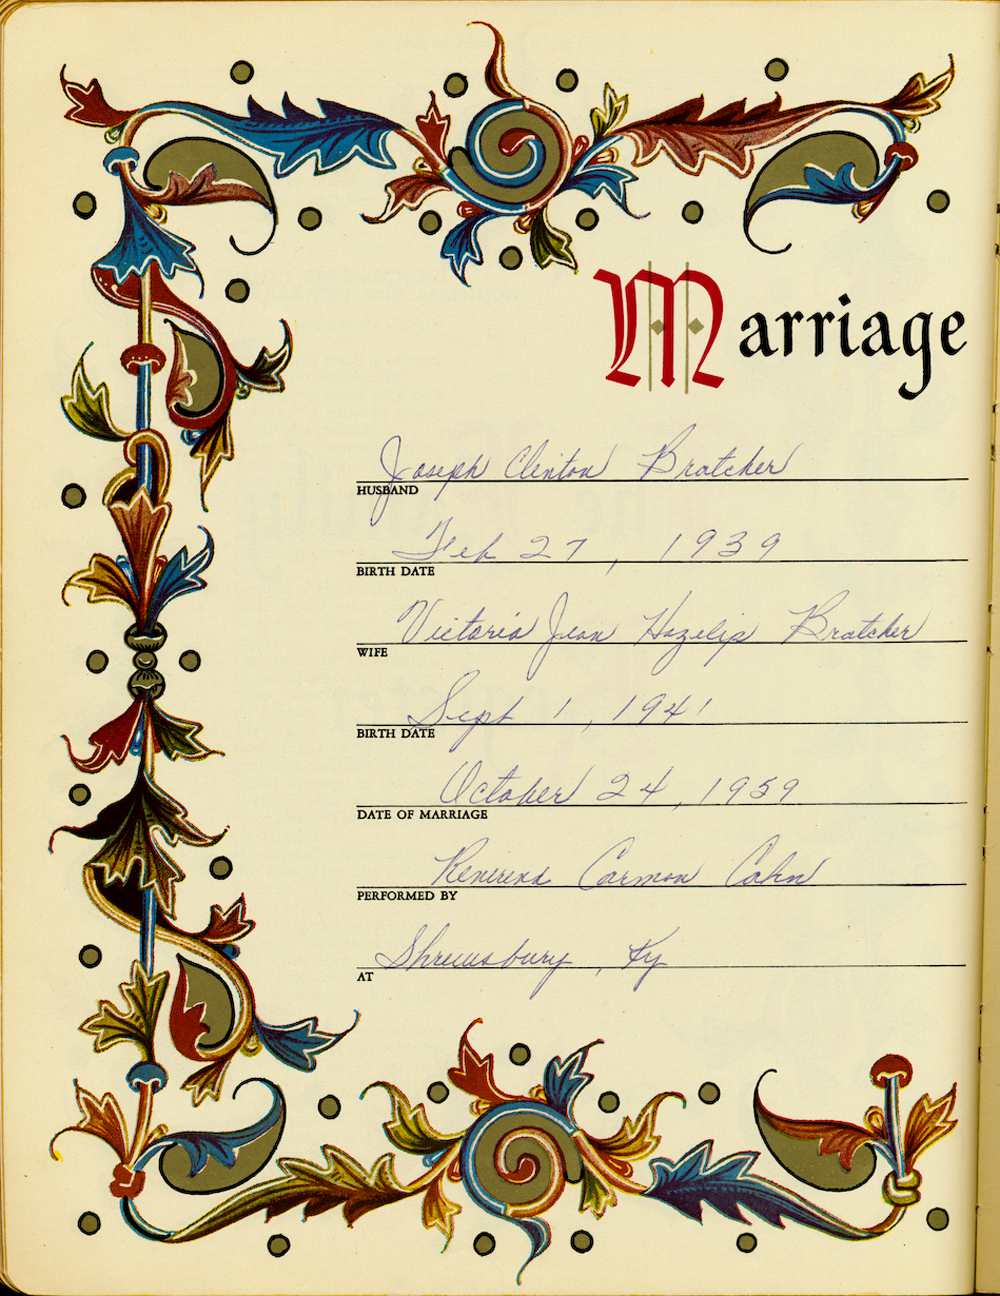 Marriage
Joseph Clinton Bratcher
HUSBAND
Feb 27, 1939
BIRTH DATE
Victoria Jean Hazelip Bratcher
WIFE
Sept 1, 1941
BIRTH DATE
October 24, 1959
DATE OF MARRIAGE
Reverend Carmon Cahn
PERFORMED BY
Shrewsbury, Ky
AT